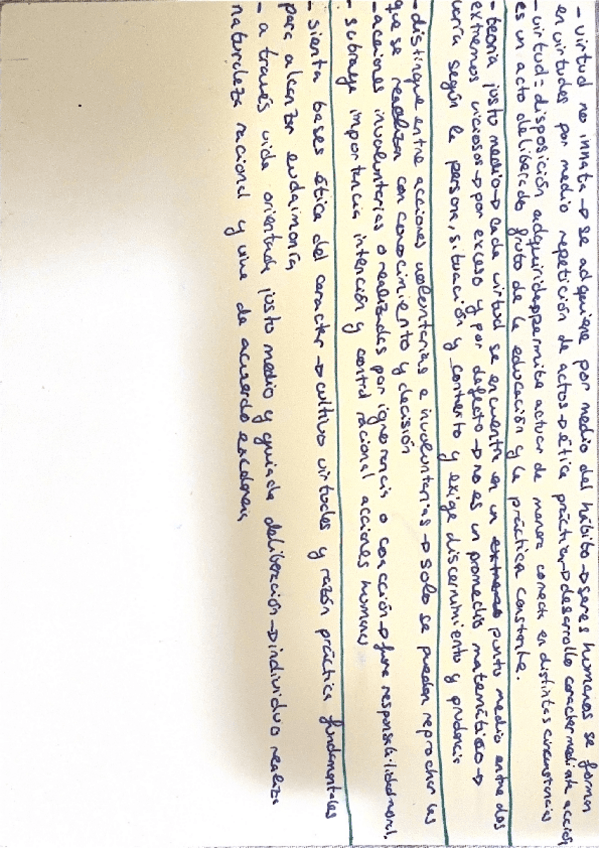 - virtud no innata → se adquiere por medio del hábito → seres humanos se forman
en virtudes por medio repetición de actos → ética práctica → desarrollo caracter mediante acción
- virtud = disposición adquirida permite actuar de manera correcta en distintas circunstancias
es un acto deliberado fruto de la educación y la práctica constante.
- teoría justo medio → cada virtud se encuentra en un punto medio entre dos
extremos viciosos → por exceso y por defecto → no es un promedio matemático →
varía según la persona, situación y contexto y exige discernimiento y prudencia
- distingue entre acciones voluntarias e involuntarias → solo se pueden reprochar las
que se realizan con conocimiento y decisión
- acciones involuntarias o realizadas por ignorancia o coacción → responsabilidad moral.
- subraya importancia intención y control racional acciones humanas
- sienta bases ética del caracter → cultivo virtudes y razón práctica fundamentales
para alcanzar eudaimonía
- a través vida orientada justo medio y guiada deliberación → individuo realiza
naturaleza racional y vive de acuerdo